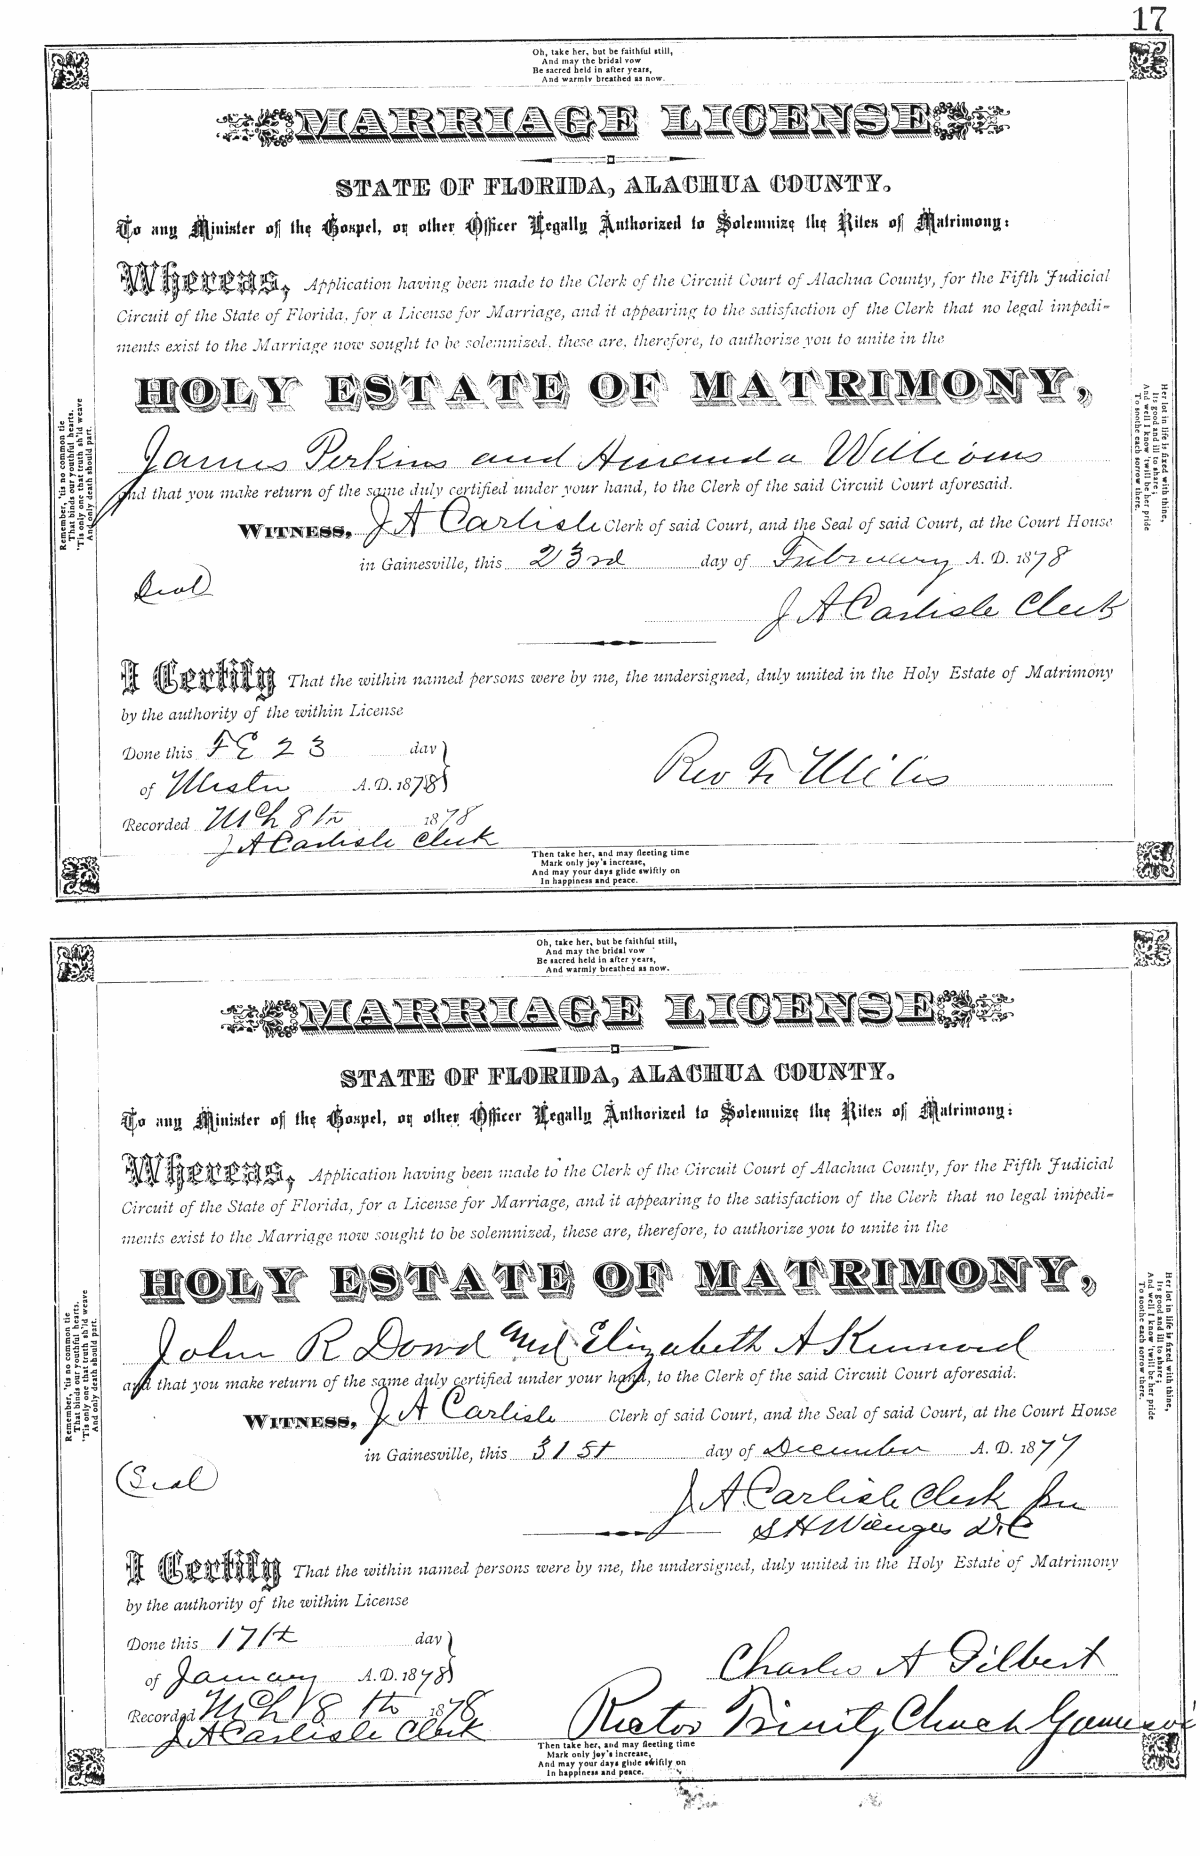 17
Oh, take her, but be faithful still,
And may the bridal vow
Be sacred held in after years,
And warmly breathed as now.
MARRIAGE LICENSE
STATE OF FLORIDA, ALACHUA COUNTY.
To any Minister of the Gospel, or other Officer Legally Authorized to Solemnize the Rites of Matrimony:
Whereas, Application having been made to the Clerk of the Circuit Court of Alachua County, for the Fifth Judicial
Circuit of the State of Florida, for a License for Marriage, and it appearing to the satisfaction of the Clerk that no legal impedi-
ments exist to the Marriage now sought to be solemnized, these are, therefore, to authorize you to unite in the
HOLY ESTATE OF MATRIMONY,
James Perkins and Amanda Williams
and that you make return of the same duly certified under your hand, to the Clerk of the said Circuit Court aforesaid.
WITNESS, J A Carlisle Clerk of said Court, and the Seal of said Court, at the Court House
in Gainesville, this 23rd day of February A. D. 1878
Seal
J A Carlisle Clerk
I Certify That the within named persons were by me, the undersigned, duly united in the Holy Estate of Matrimony
by the authority of the within License
Done this FE 23 day
of A. D. 1878
Rev
Recorded Mch 8th 1878
J A Carlisle Clerk
Then take her, and may fleeting time
Mark only joy's increase,
And may your days glide swiftly on
In happiness and peace.
Remember, 'tis no common tie
That binds our youthful hearts,
'Tis only one that truth sh'ld weave
And only death should part.
Her lot in life is fixed with thine,
Its good and ill to share;
And well I know 'twill be her pride
To soothe each sorrow there.
Oh, take her, but be faithful still,
And may the bridal vow
Be sacred held in after years,
And warmly breathed as now.
MARRIAGE LICENSE
STATE OF FLORIDA, ALACHUA COUNTY.
To any Minister of the Gospel, or other Officer Legally Authorized to Solemnize the Rites of Matrimony:
Whereas, Application having been made to the Clerk of the Circuit Court of Alachua County, for the Fifth Judicial
Circuit of the State of Florida, for a License for Marriage, and it appearing to the satisfaction of the Clerk that no legal impedi-
ments exist to the Marriage now sought to be solemnized, these are, therefore, to authorize you to unite in the
HOLY ESTATE OF MATRIMONY,
John R Dowd and Elizabeth A Kennard
and that you make return of the same duly certified under your hand, to the Clerk of the said Circuit Court aforesaid.
WITNESS, J A Carlisle Clerk of said Court, and the Seal of said Court, at the Court House
in Gainesville, this 31st day of December A. D. 1877
(Seal)
J A Carlisle Clerk
S H Wienges D.C
I Certify That the within named persons were by me, the undersigned, duly united in the Holy Estate of Matrimony
by the authority of the within License
Done this 17th day
of January A. D. 1878
Charles A Gilbert
Recorded Mch 18th 1878
Rector Trinity Church
J A Carlisle Clerk
Then take her, and may fleeting time
Mark only joy's increase,
And may your days glide swiftly on
In happiness and peace.
Remember, 'tis no common tie
That binds our youthful hearts,
'Tis only one that truth sh'ld weave
And only death should part.
Her lot in life is fixed with thine,
Its good and ill to share;
And well I know 'twill be her pride
To soothe each sorrow there.